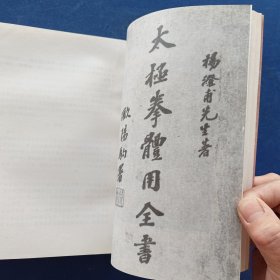 楊澄甫先生著
太極拳體用全書
歐陽駒署